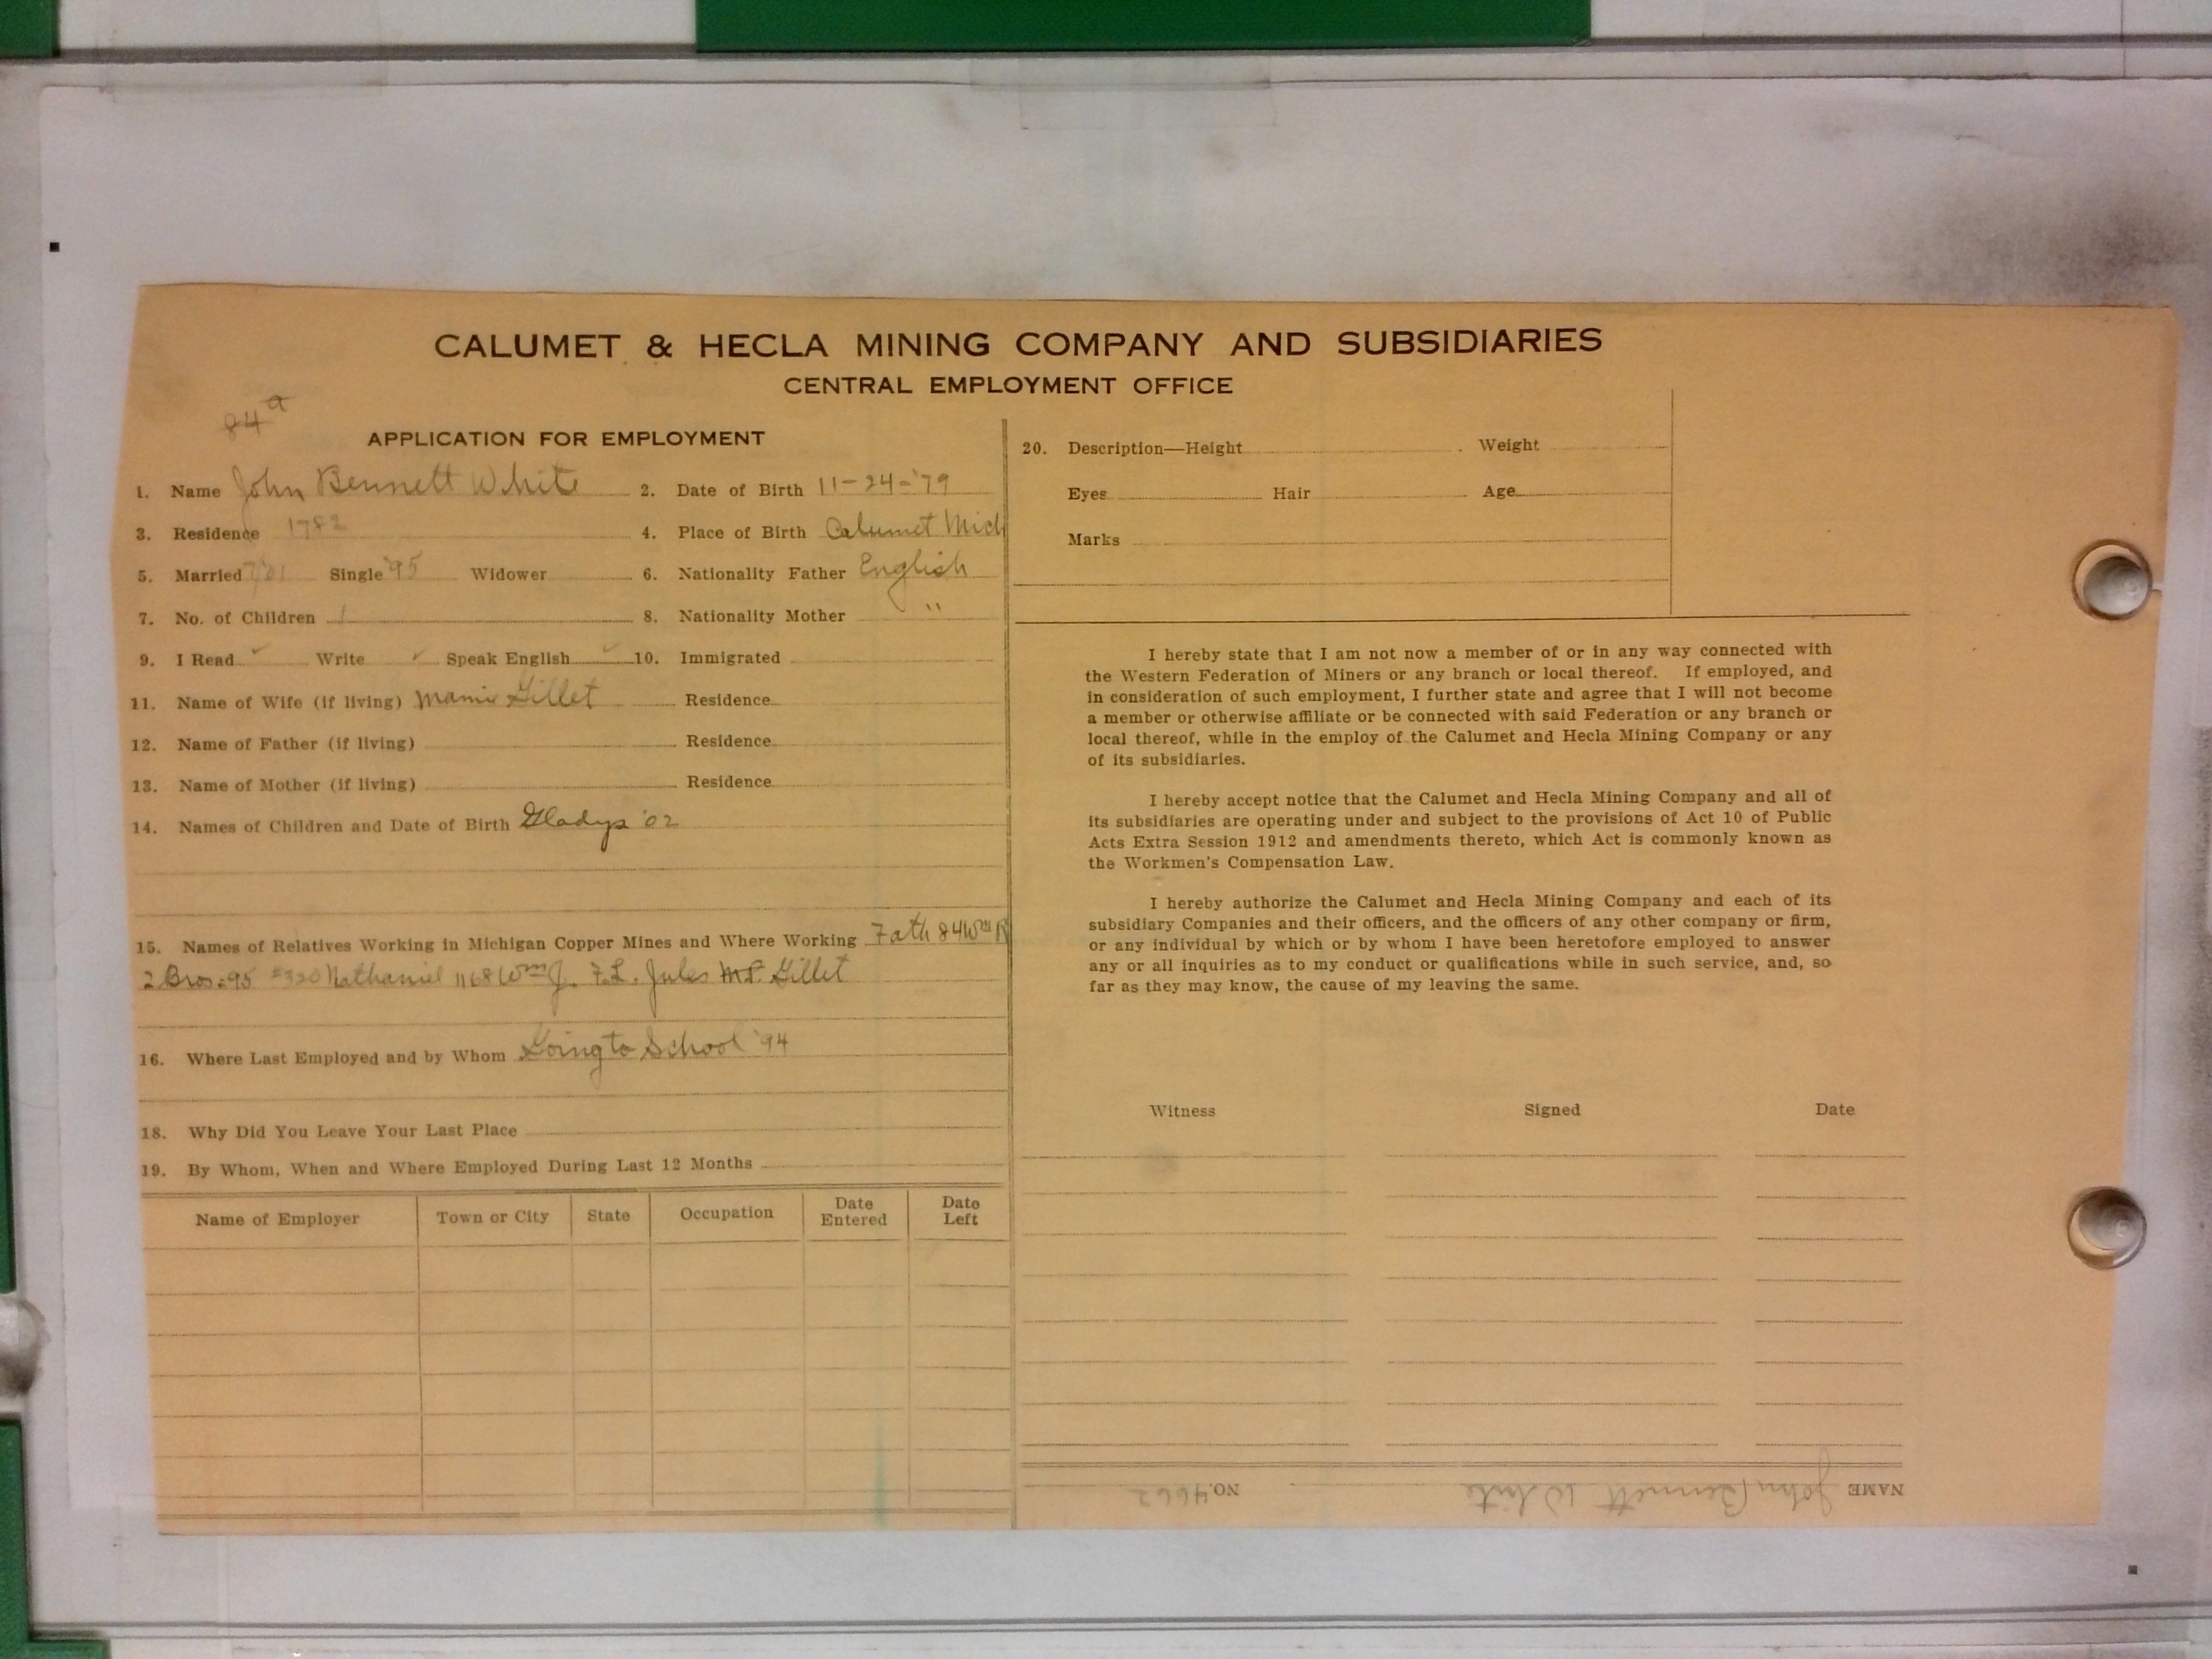 CALUMET & HECLA MINING COMPANY AND SUBSIDIARIES
CENTRAL EMPLOYMENT OFFICE
84 a
APPLICATION FOR EMPLOYMENT
1. Name John Bennett White 2. Date of Birth 11-24-'79
3. Residence 1782 4. Place of Birth Calumet Mich
5. Married '01 Single '95 Widower 6. Nationality Father English
7. No. of Children 1 8. Nationality Mother "
9. I Read ✓ Write ✓ Speak English ✓ 10. Immigrated
11. Name of Wife (if living) Mamie Gillet Residence
12. Name of Father (if living) Residence
13. Name of Mother (if living) Residence
14. Names of Children and Date of Birth Gladys '02
15. Names of Relatives Working in Michigan Copper Mines and Where Working Fath 84 Wm R
2 Bros = 95 #320 Nathaniel 1168 Wm J. F.L. Jules Gillet
16. Where Last Employed and by Whom Going to School '94
18. Why Did You Leave Your Last Place
19. By Whom, When and Where Employed During Last 12 Months
Name of Employer Town or City State Occupation Date Entered Date Left
20. Description—Height Weight
Eyes Hair Age
Marks
I hereby state that I am not now a member of or in any way connected with
the Western Federation of Miners or any branch or local thereof. If employed, and
in consideration of such employment, I further state and agree that I will not become
a member or otherwise affiliate or be connected with said Federation or any branch or
local thereof, while in the employ of the Calumet and Hecla Mining Company or any
of its subsidiaries.
I hereby accept notice that the Calumet and Hecla Mining Company and all of
its subsidiaries are operating under and subject to the provisions of Act 10 of Public
Acts Extra Session 1912 and amendments thereto, which Act is commonly known as
the Workmen's Compensation Law.
I hereby authorize the Calumet and Hecla Mining Company and each of its
subsidiary Companies and their officers, and the officers of any other company or firm,
or any individual by which or by whom I have been heretofore employed to answer
any or all inquiries as to my conduct or qualifications while in such service, and, so
far as they may know, the cause of my leaving the same.
Witness Signed Date
NAME John Bennett White NO. 4662